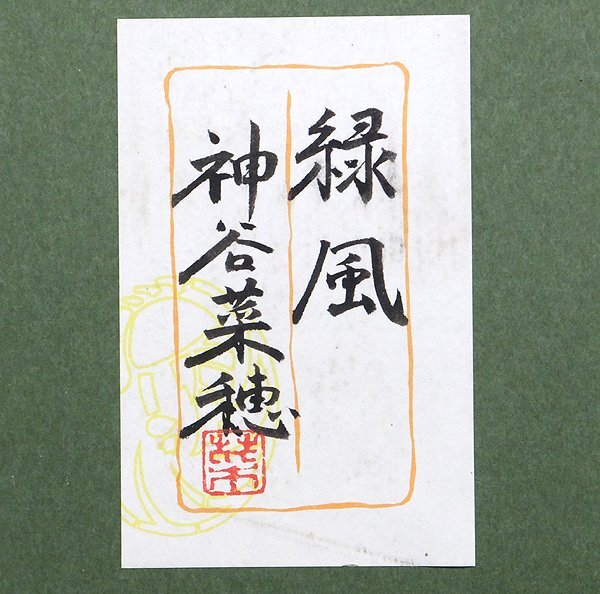 緑風
神谷菜穂